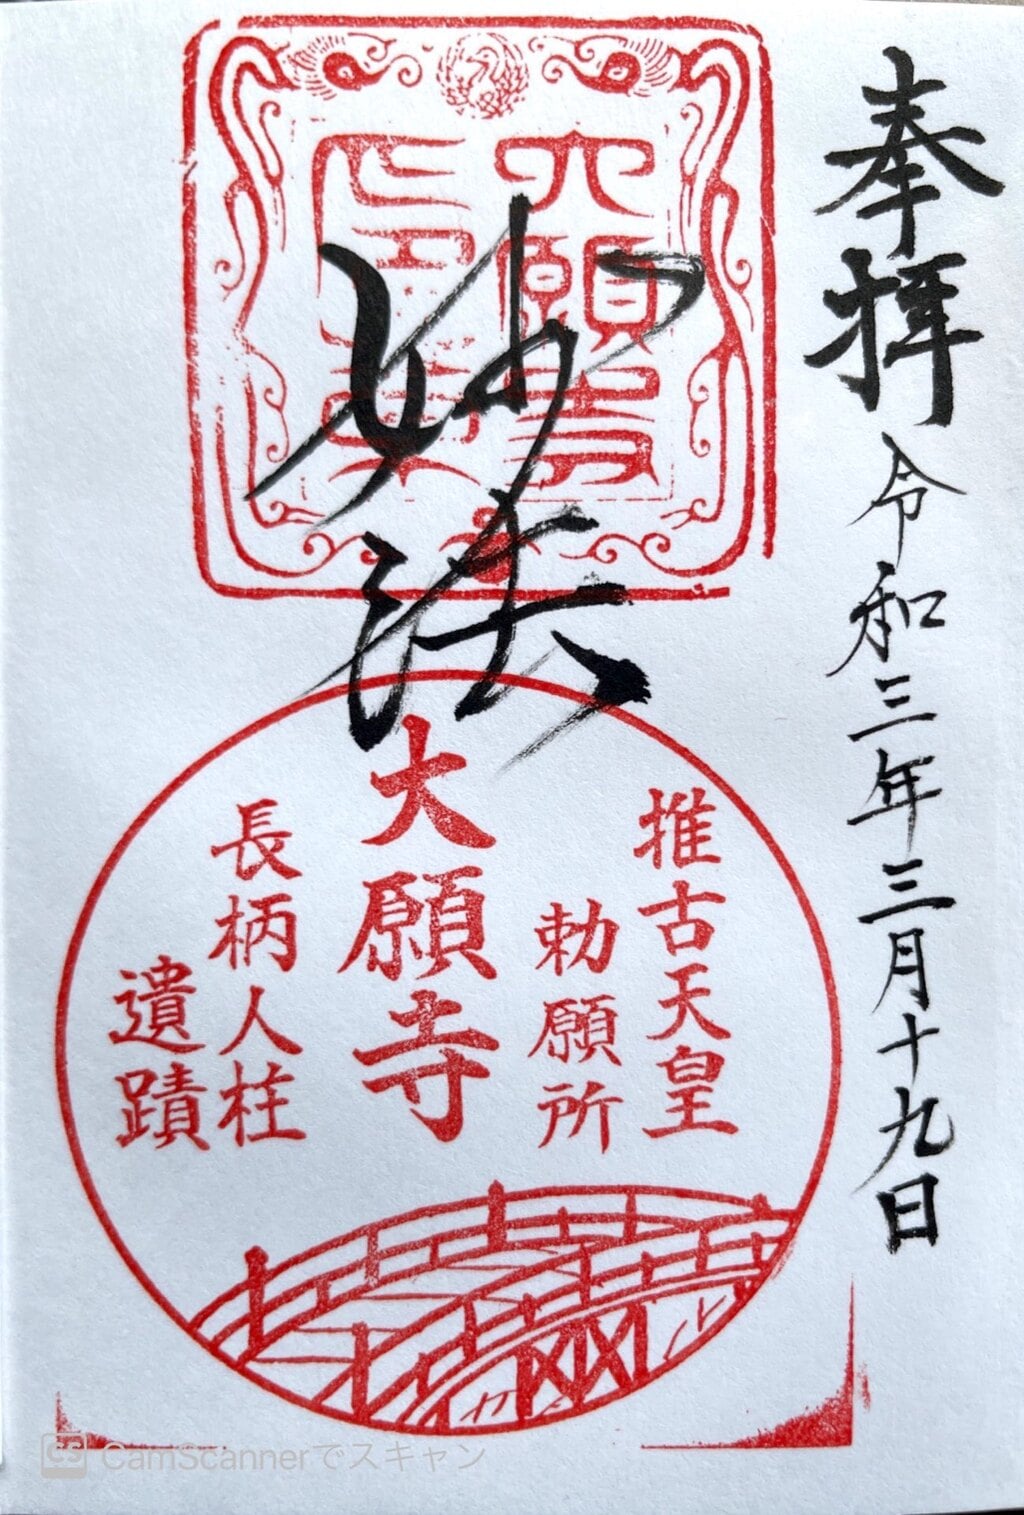 奉拝
令和三年三月十九日
妙法
大願寺
印章
推古天皇
勅願所
大願寺
長柄人柱
遺蹟
CS CamScannerでスキャン